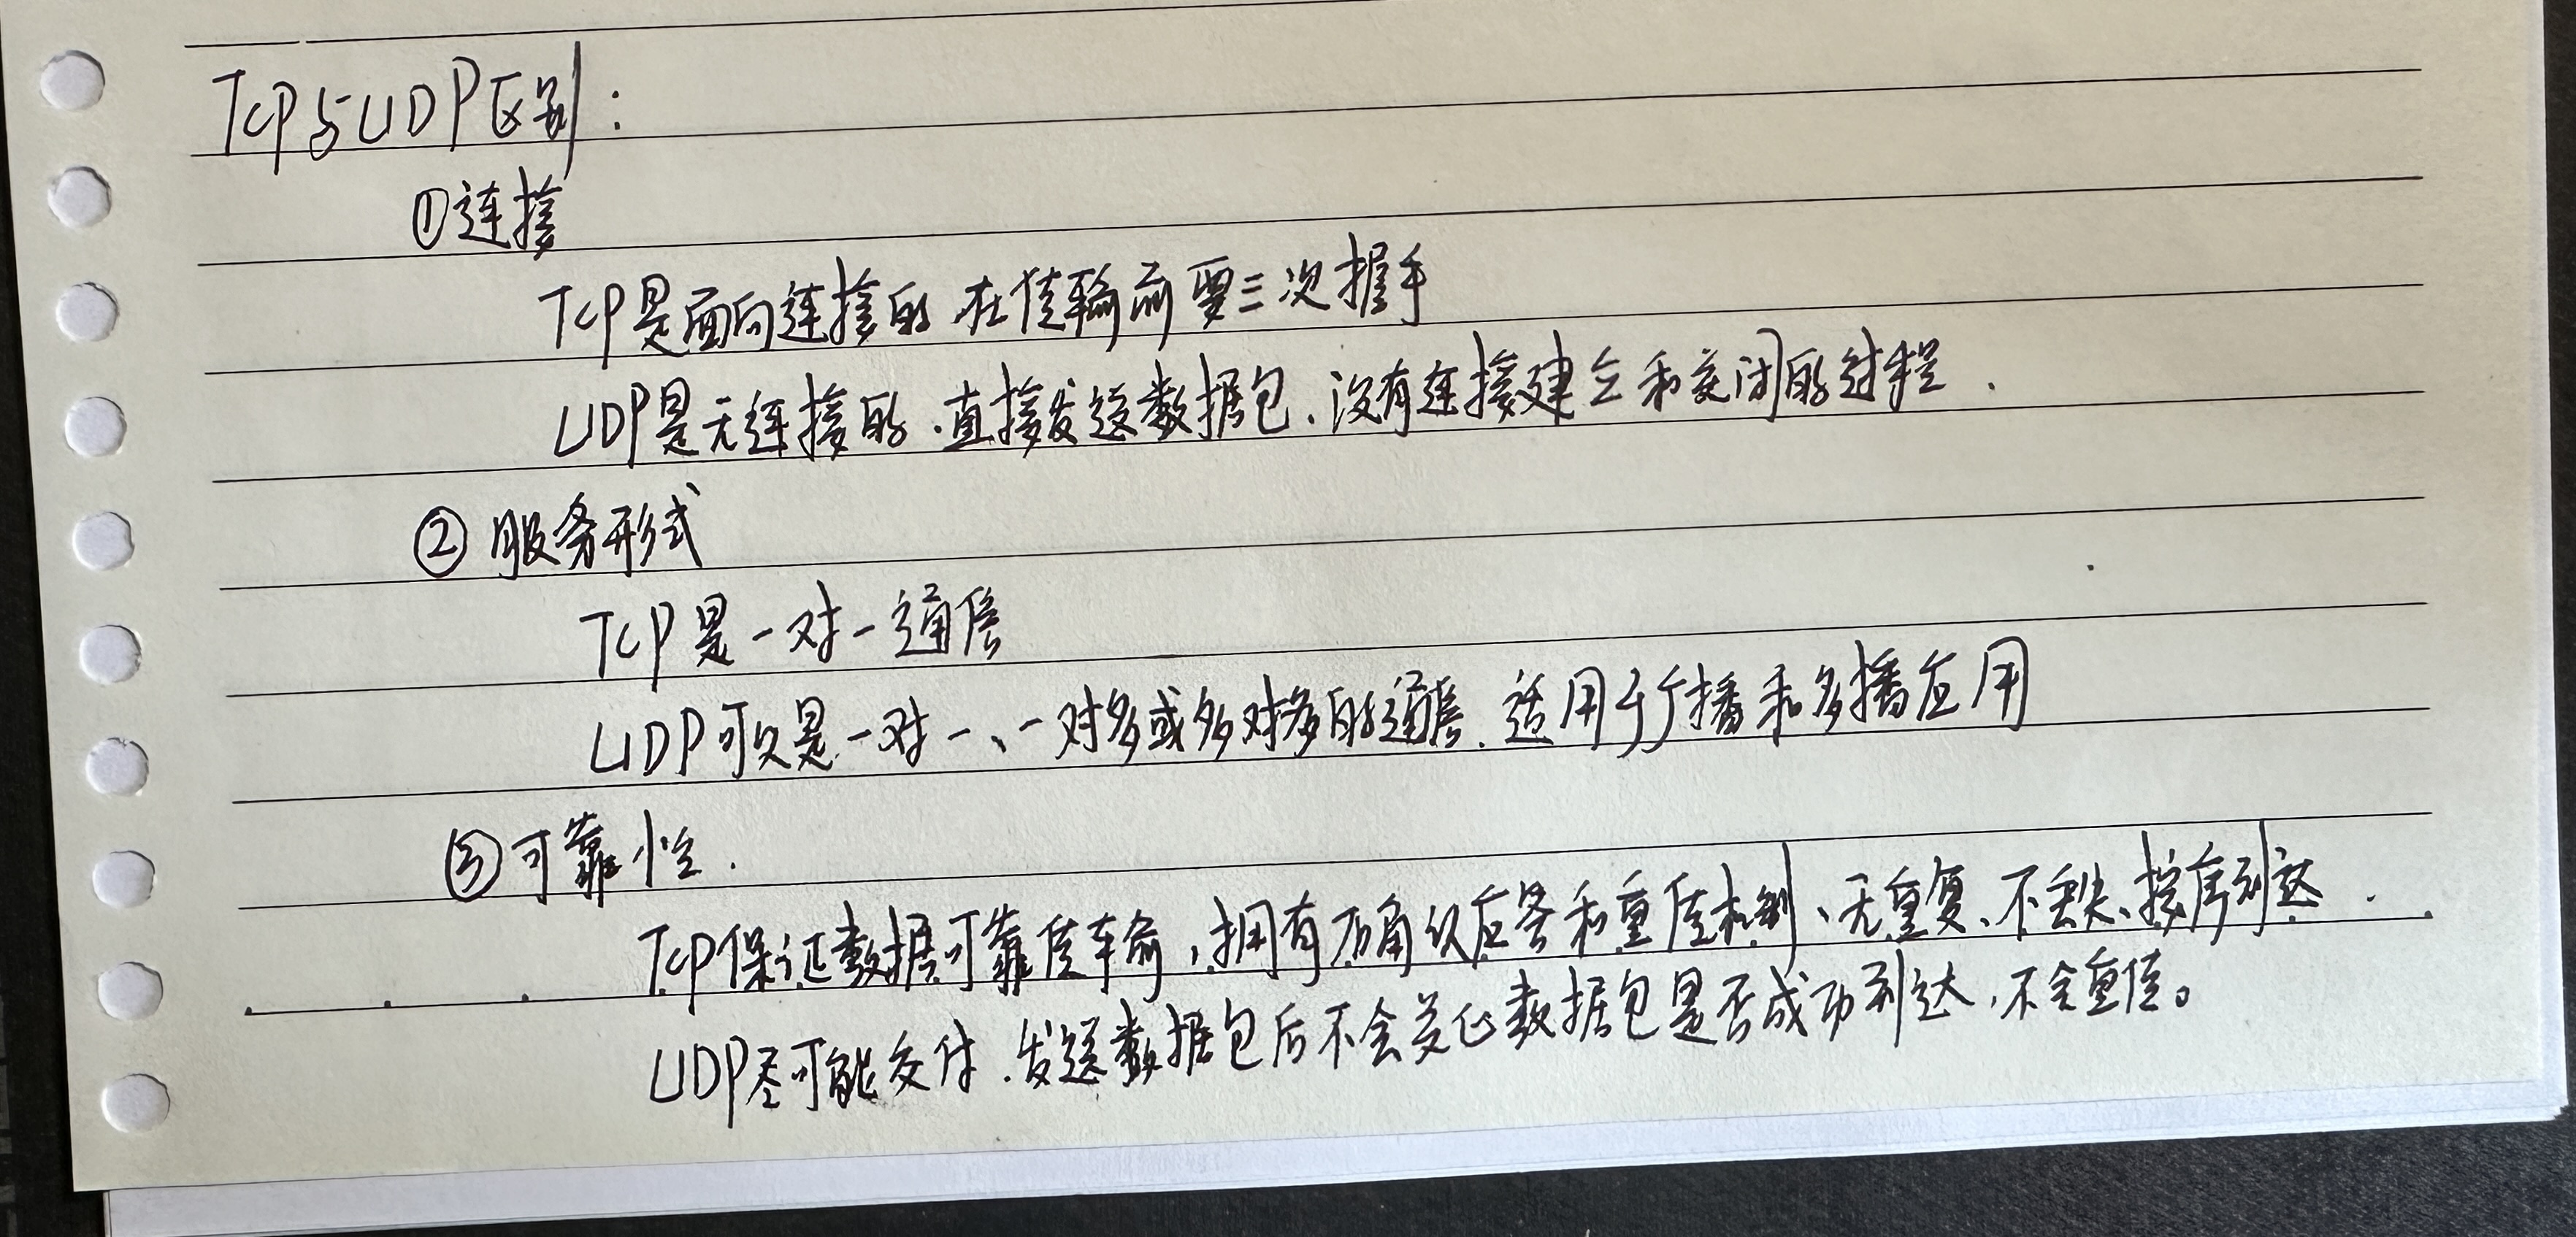 TCP与UDP区别:
①连接
TCP是面向连接的 在传输前要三次握手
UDP是无连接的.直接发送数据包.没有连接建立和关闭的过程.
② 服务形式
TCP是一对一通信
UDP可以是一对一、一对多或多对多的通信.适用于广播和多播应用
③可靠性.
TCP保证数据可靠传输,拥有确认应答和重传机制、无重复、不丢失、按序到达.
UDP尽可能交付.发送数据包后不会关心数据包是否成功到达,不会重传。